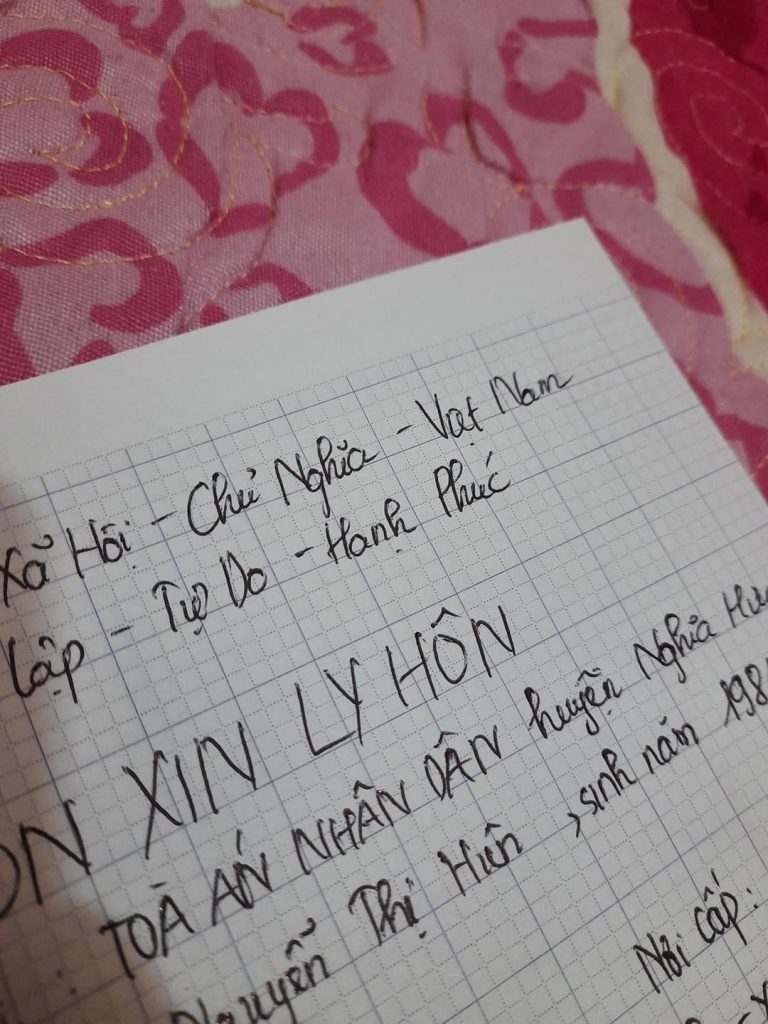 Xã Hội - Chủ Nghĩa - Việt Nam
Lập - Tự Do - Hạnh Phúc
ƠN XIN LY HÔN
: TOÀ ÁN NHÂN DÂN huyện Nghĩa Hư
Nguyễn Thị Hiền , sinh năm 198
Nơi cấp: